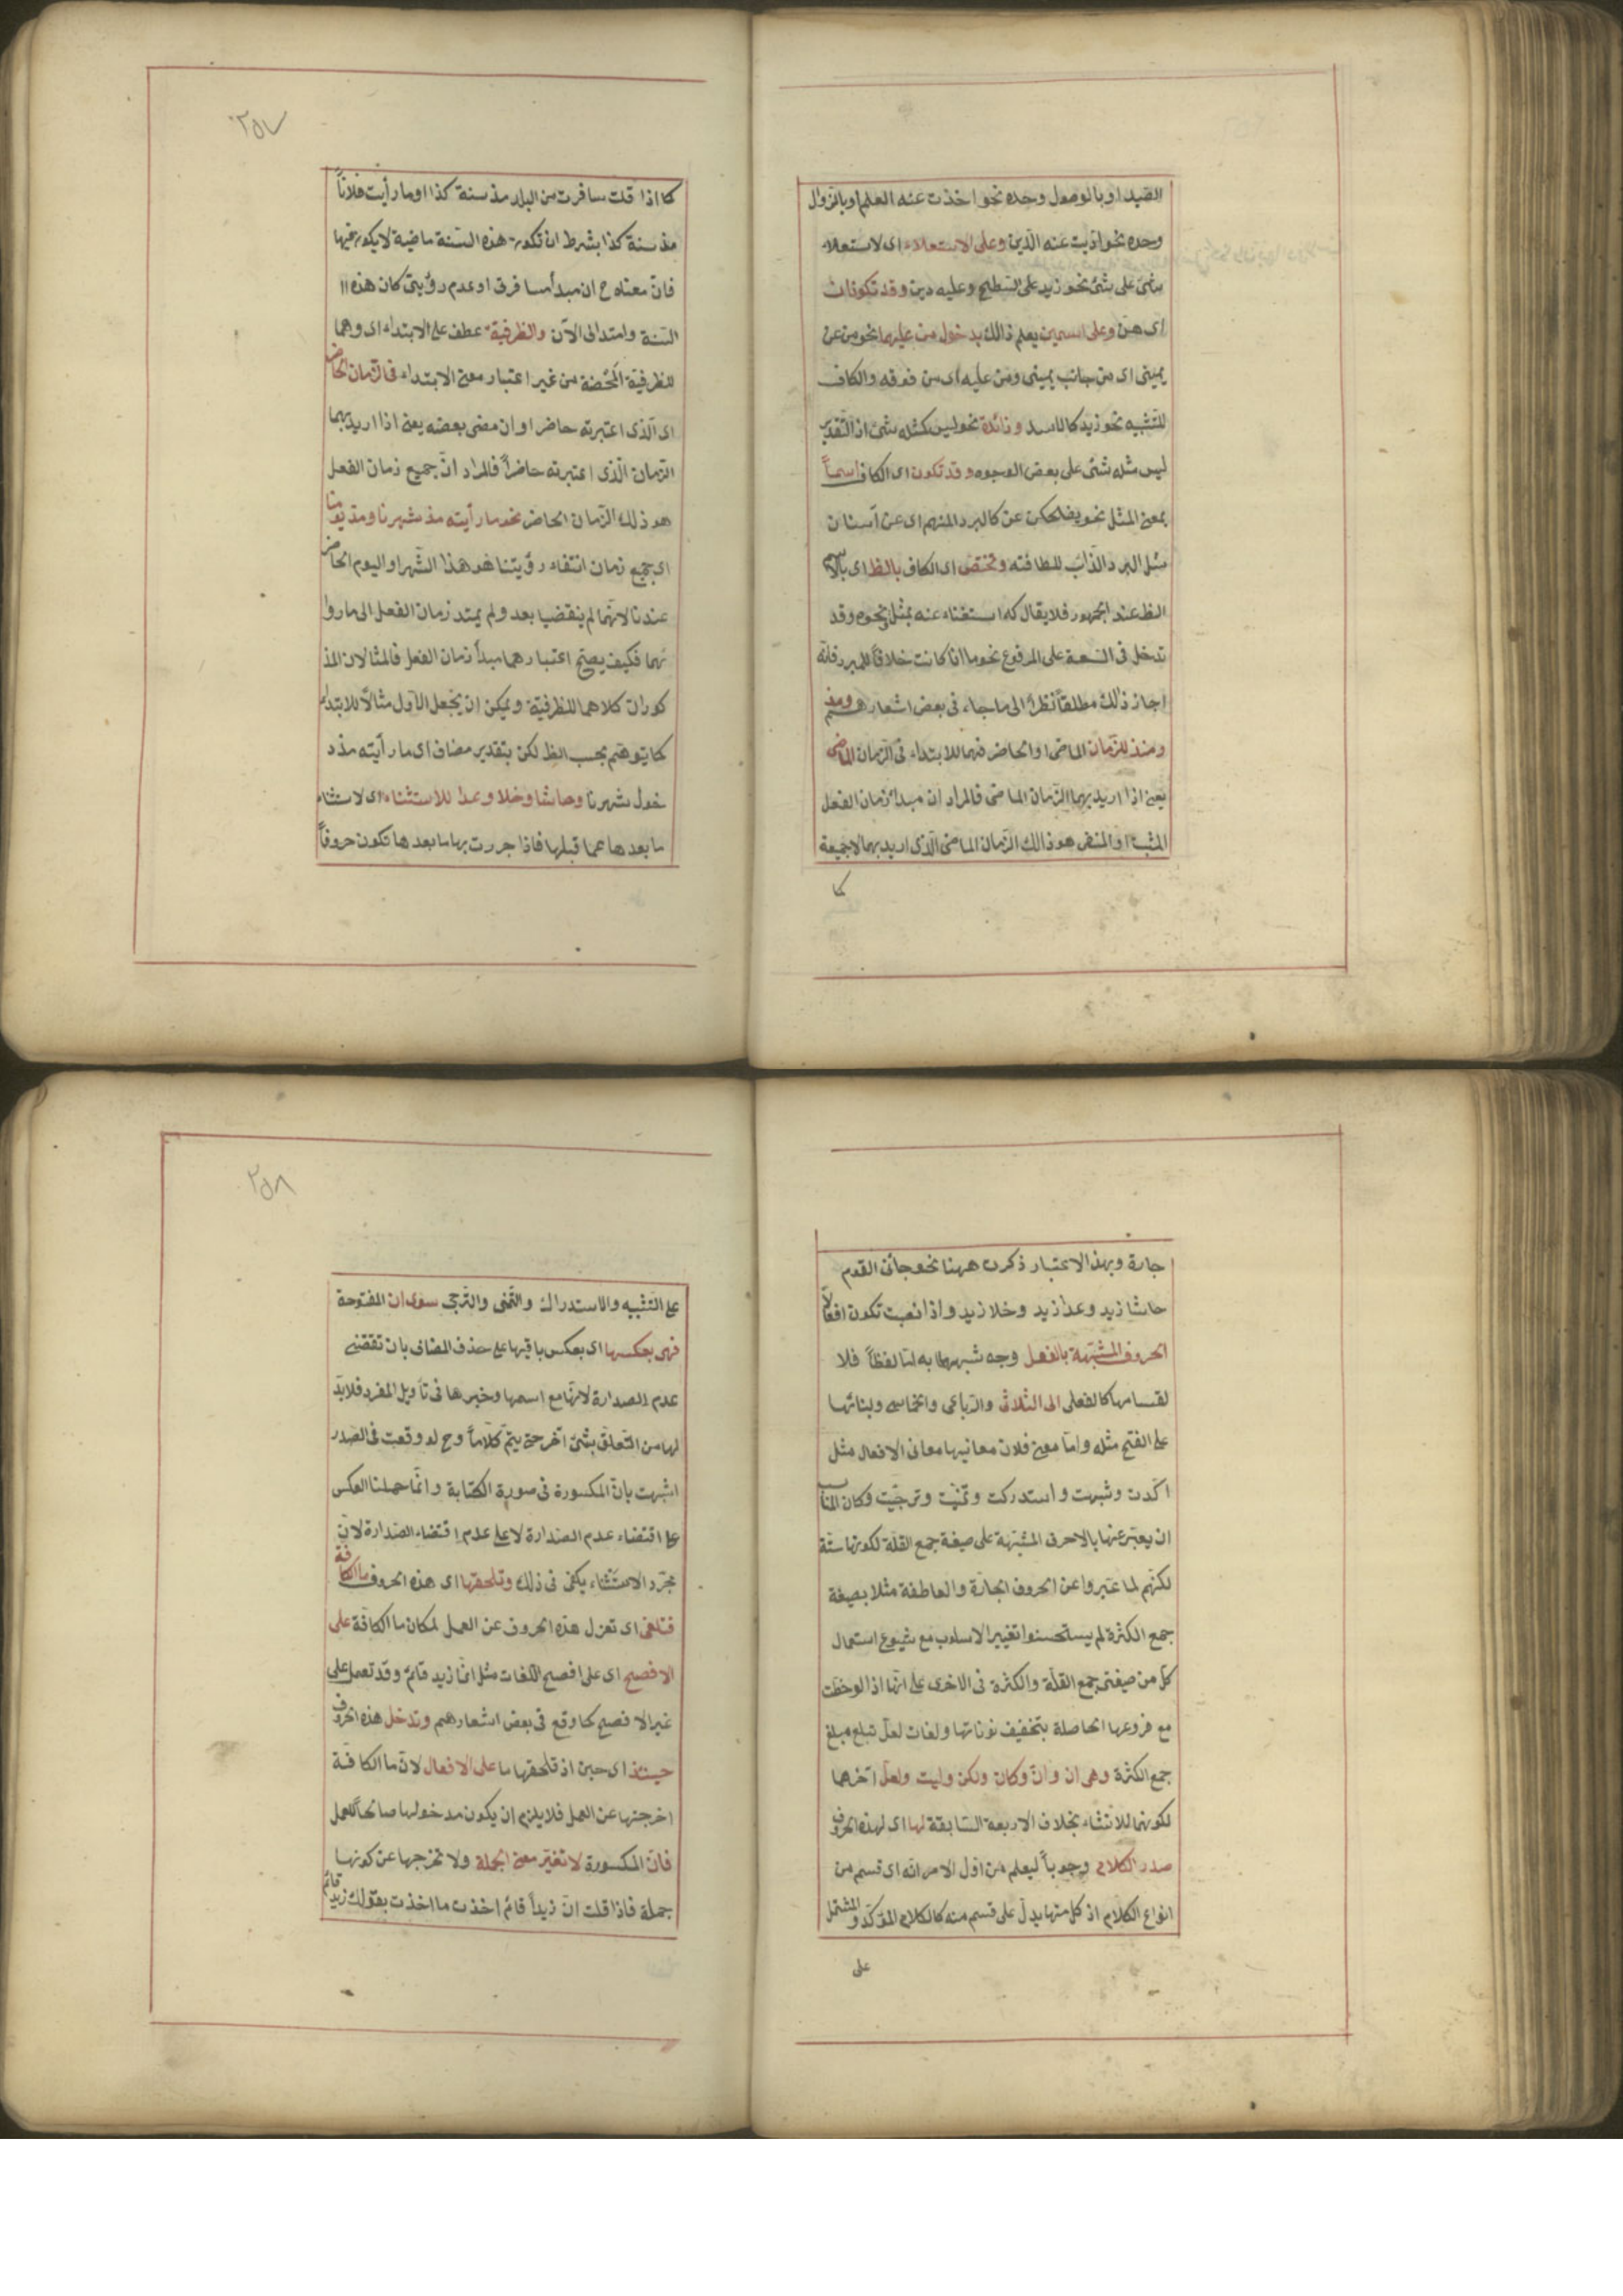 الصيد او بالوصول وحده نحو اخذت عنه العلم او بالزوال
وحده نحو اديت عنه الدين وعلى الاستعلاء اى لاستعلاء
شئ على شئ نحو زيد على السطح وعليه دين وقد تكونان
اى عن وعلى اسمين يعلم ذالك بدخول من عليهما نحو من عن
يمينى اى من جانب يمينى ومن عليه اى من فوقه والكاف
للتشبيه نحو زيد كالاسد وزائدة نحو ليس كمثله شئ اذ التقدير
ليس مثله شئ على بعض الوجوه وقد تكون اى الكاف اسماً
بمعنى المثل نحو يضحكن عن كالبرد المنهم اى عن اسنان
مثل البرد الذائب للطافته وتختص اى الكاف بالظ اى بالاسم
الظ عند الجمهور فلا يقال كه استغناء عنه بمثل نحوه وقد
تدخل فى السعة على المرفوع نحو ما انا كانت خلافاً للمبرد فانه
اجاز ذلك مطلقاً نظرا الى ما جاء فى بعض اشعارهم ومذ
ومنذ للزمان الماضى او الحاضر فهما للابتداء فى الزمان الماضى
يعنى اذا اريد بهما الزمان الماضى فالمراد ان مبدأ زمان الفعل
المثبت او المنفى هو ذالك الزمان الماضى الذى اريد بهما لا جميعه
كما
٢٥٧
كما اذا قلت سافرت من البلد مذ سنة كذا او ما رأيت فلاناً
مذ سنة كذا بشرط ان تكون هذه السنة ماضية لا يكون فيها
فان معناه ح ان مبدأ مسافرتى او عدم رؤيتى كان هذه
السنة وامتد الى الآن والظرفية عطف على الابتداء اى وهما
للظرفية المحضة من غير اعتبار معنى الابتداء فى الزمان الحاضر
اى الذى اعتبرته حاضرا وان مضى بعضه يعنى اذا اريد بهما
الزمان الذى اعتبرته حاضراً فالمراد انّ جميع زمان الفعل
هو ذلك الزمان الحاضر نحو ما رأيته مذ شهرنا ومذ يومنا
اى جميع زمان انتفاء رؤيتنا هو هذا الشهر او اليوم الحاضر
عندنا لانهما لم ينقضيا بعد ولم يمتد زمان الفعل الى ما روا
ئهما فكيف يصح اعتبارهما مبدأ زمان الفعل فالمثالان المذ
كوران كلاهما للظرفية ويمكن ان يجعل الاول مثالاً للابتداء
كما يتوهم بحسب الظ لكن بتقدير مضاف اى ما رأيته مذ د
خول شهرنا وحاشا وخلا وعدا للاستثناء اى لاستثناء
ما بعدها عما قبلها فاذا جررت بها ما بعدها تكون حروفاً
جارة وبهذا الاعتبار ذكرت ههنا نحو جائنى القوم
حاشا زيد وعدا زيد وخلا زيد واذا نصبت تكون افعالاً
الحروف المشبهة بالفعل وجه شبهها به اما لفظاً فلا
نقسامها كالفعل الى الثلاثى والرباعى والخماسى ولبنائها
على الفتح مثله واما معنى فلان معانيها معانى الافعال مثل
اكدت وشبهت واستدركت وتمنيت وترجيت وكان المناسب
ان يعبر عنها بالاحرف المشبهة على صيغة جمع القلة لكونها ستة
لكنهم لما عبروا عن الحروف الجارة والعاطفة مثلا بصيغة
جمع الكثرة لم يستحسنوا تغيير الاسلوب مع شيوع استعمال
كل من صيغتى جمع القلة والكثرة فى الاخرى على انها اذا لوحظت
مع فروعها الحاصلة بتخفيف نوناتها ولغات لعل تبلغ مبلغ
جمع الكثرة وهى ان وانّ وكان ولكن وليت ولعل آخرهما
لكونهما للانشاء بخلاف الاربعة السابقة لها اى لهذه الحروف
صدر الكلام وجوباً ليعلم من اول الامر انه اى قسم من
انواع الكلام اذ كل منها يدل على قسم منه كالكلام المؤكد والمشتمل
على
٢٥٨
على التشبيه والاستدراك والتمنى والترجى سوى ان المفتوحة
فهى بعكسها اى بعكس باقيها على حذف المضاف بان تقتضى
عدم الصدارة لانها مع اسمها وخبرها فى تاويل المفرد فلا بدّ
لها من التعلق بشئ آخر حتى يتم كلاماً وح لو وقعت فى الصدر
اشبهت بان المكسورة فى صورة الكتابة وانما حملنا العكس
على اقتضاء عدم الصدارة لا على عدم اقتضاء الصدارة لانّ
مجرد الاستثناء يكفى فى ذلك وتلحقها اى هذه الحروف ما الكافة
فتلغى اى تعزل هذه الحروف عن العمل لمكان ما الكافة على
الافصح اى على افصح اللغات مثل انما زيد قائم وقد تعمل على
غير الافصح كما وقع فى بعض اشعارهم وتدخل هذه الحروف
حينئذ اى حين اذ تلحقها ما على الافعال لان ما الكافة
اخرجتها عن العمل فلا يلزم ان يكون مدخولها صالحاً للعمل
فان المكسورة لا تغير معنى الجملة ولا تخرجها عن كونها
جملة فاذا قلت ان زيداً قائم اخذت ما اخذت بقولك زيد قائم